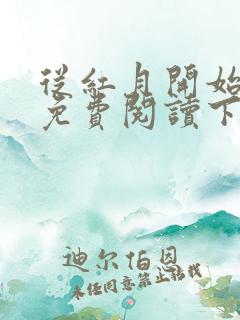 從紅月開始
免費閱讀下
迪尔伯恩
未经同意禁止转载